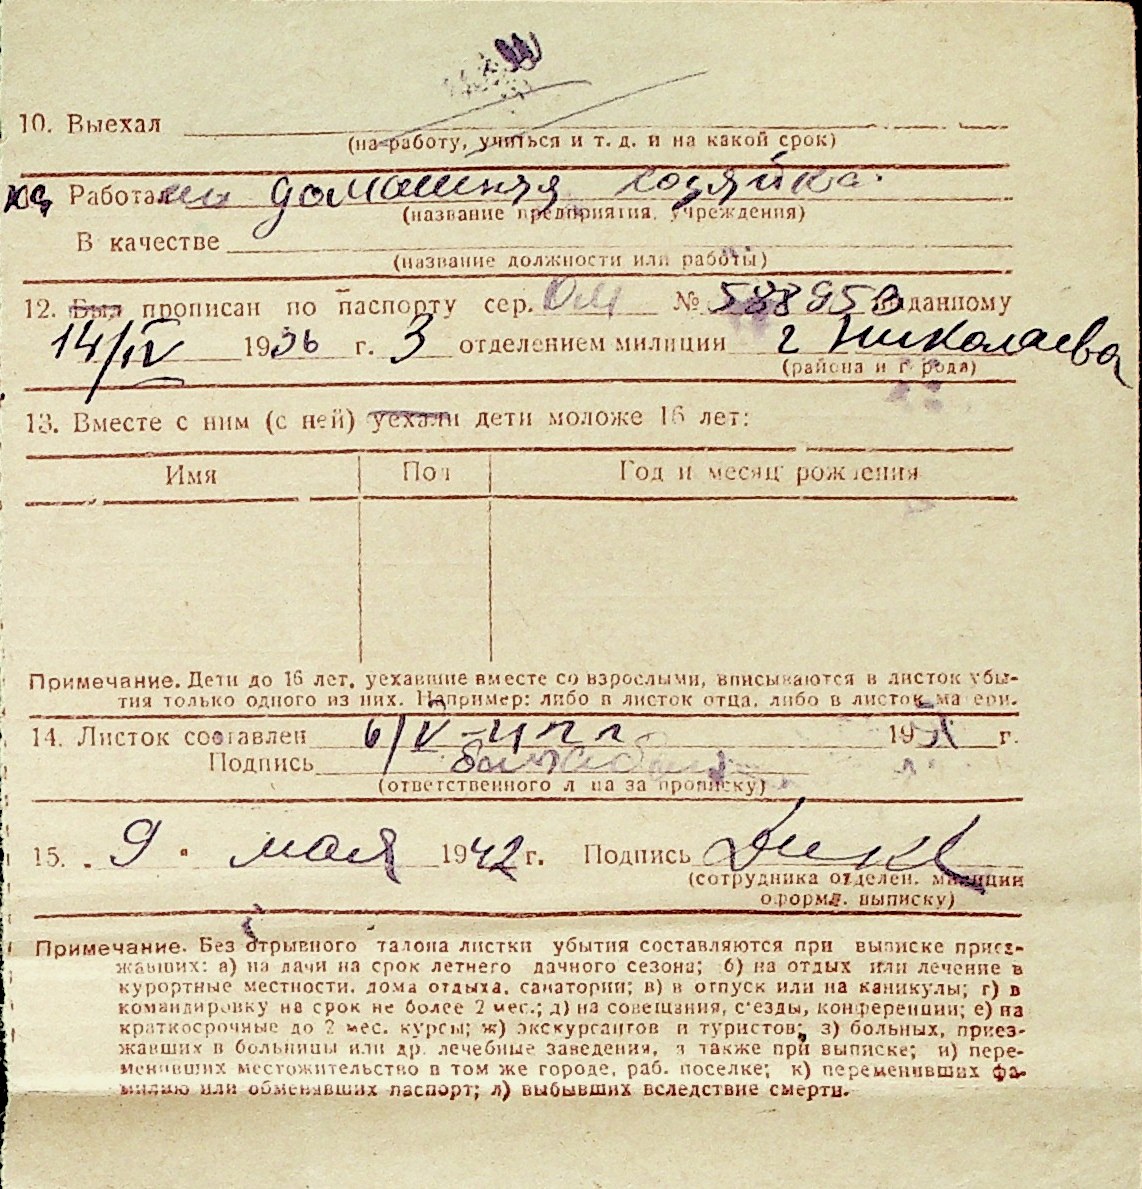 10. Выехал
(на работу, учиться и т. д. и на какой срок)
Работа домашняя хозяйка.
(название предприятия, учреждения)
В качестве
(название должности или работы)
12. Был прописан по паспорту сер. ОМ № 588953 выданному
14/IV 1936 г. 3 отделением милиции г Николаева
(района и города)
13. Вместе с ним (с ней) уехали дети моложе 16 лет:
Имя Пол Год и месяц рождения
Примечание. Дети до 16 лет, уехавшие вместе со взрослыми, вписываются в листок убы-
тия только одного из них. Например: либо в листок отца, либо в листок матери.
14. Листок составлен 6/V 19 г.
Подпись
(ответственного лица за прописку)
15. 9 мая 1942 г. Подпись
(сотрудника отделен. милиции
оформл. выписку)
Примечание. Без отрывного талона листки убытия составляются при выписке приез-
жавших: а) на дачи на срок летнего дачного сезона; б) на отдых или лечение в
курортные местности, дома отдыха, санатории; в) в отпуск или на каникулы; г) в
командировку на срок не более 2 мес.; д) на совещания, с'езды, конференции; е) на
краткосрочные до 2 мес. курсы; ж) экскурсантов и туристов; з) больных, приез-
жавших в больницы или др. лечебные заведения, а также при выписке; и) пере-
менивших местожительство в том же городе, раб. поселке; к) переменивших фа-
милию или обменявших паспорт; л) выбывших вследствие смерти.